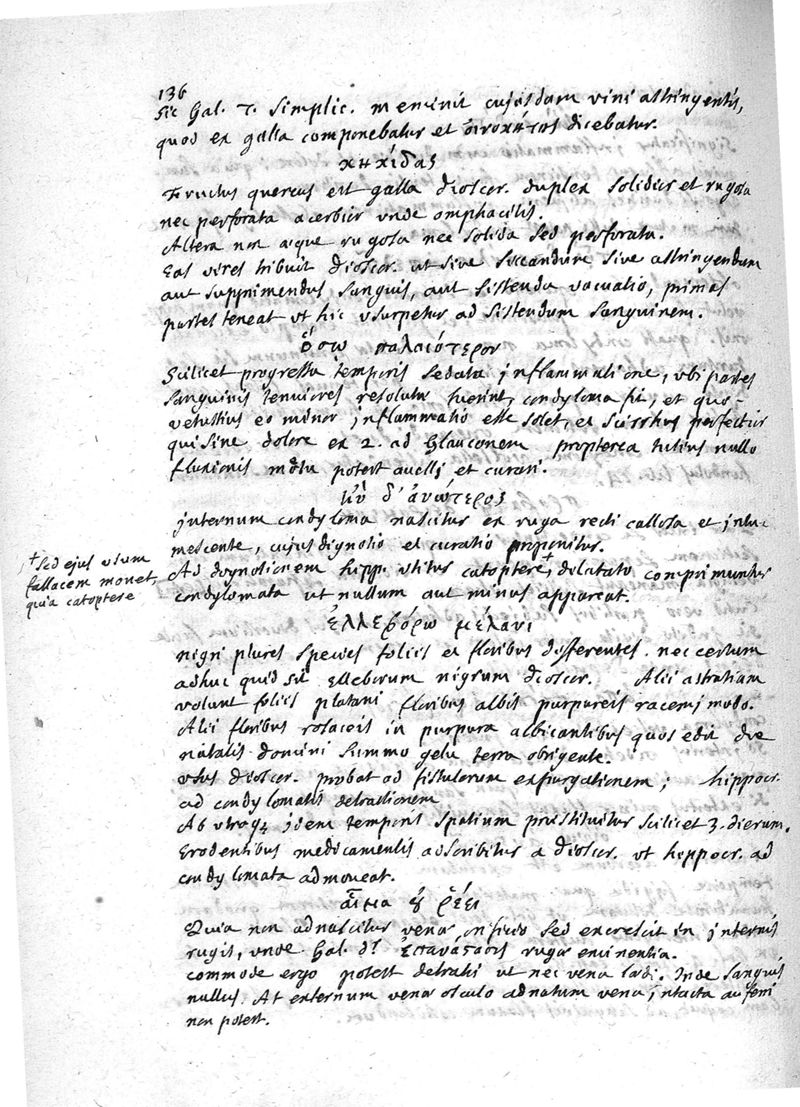 136
Sic Gal. 7. Simplic. meminit cujusdam vini asthingentis,
quod ex galla componebatur et dicebatur.
κηκίδας
Fructus quercus est galla dioscor. duplex solidior et rugosa
nec perforata acerbior unde omphacitis.
Altera non aeque rugosa nec solida sed perforata.
Eas vires tribuit dioscor. ut sive siccandum sive asthingendum
aut supprimendus sanguis, aut sistenda vacuatio, primas
partes teneat ut hic usurpetur ad sistendum sanguinem.
ὅσῳ παλαιότερον
Scilicet progressu temporis sedata inflammatione, ubi partes
sanguinis tenuiores resolutae fuerint, condyloma fit, et quo-
vetustius eo minor inflammatio esse solet, et scirrhus perfectus
qui sine dolore ex 2. ad Glauconem propterea tutius nullo
fluxionis metu potest avelli et curari.
ἢν δ' ἀνώτερος
internum condyloma nascitur ex ruga recti callosa et intu-
mescente, cujus dignotio et curatio proponitur.
Ad dygnotionem hipp. utitur catoptere,+ dilatato comprimuntur
condylomata ut nullum aut minus appareat.
+ Sed ejus usum
fallacem monet,
quia catoptere
ἑλλεβόρῳ μέλανι
nigri plures species foliis et floribus differentes. nec certum
adhuc quid sit elleborum nigrum dioscor. Alii astratiam
volunt foliis platani floribus albis purpureis racemi modo.
Alii floribus rosaceis in purpura albicantibus quos edit die
natalis domini summo gelu terra obrigente.
usus dioscor. probat ad fistularum expurgationem; hippocr.
ad condylomatis detractionem
Ab utroq; idem temporis spatium praestituitur scilicet 3. dierum.
Erodentibus medicamentis adscribitur a dioscor. ut hippocr. ad
condylomata admoveat.
αἷμα οὐ ῥέει
Quia non adnascitur venae orificio sed excrescit in internis
rugis, unde Gal. dr ἐπανάστασις rugae eminentia.
commode ergo potest detrahi ut nec vena laedi. Inde sanguis
nullus. At externum venae osculo adnatum vena intacta auferri
non potest.